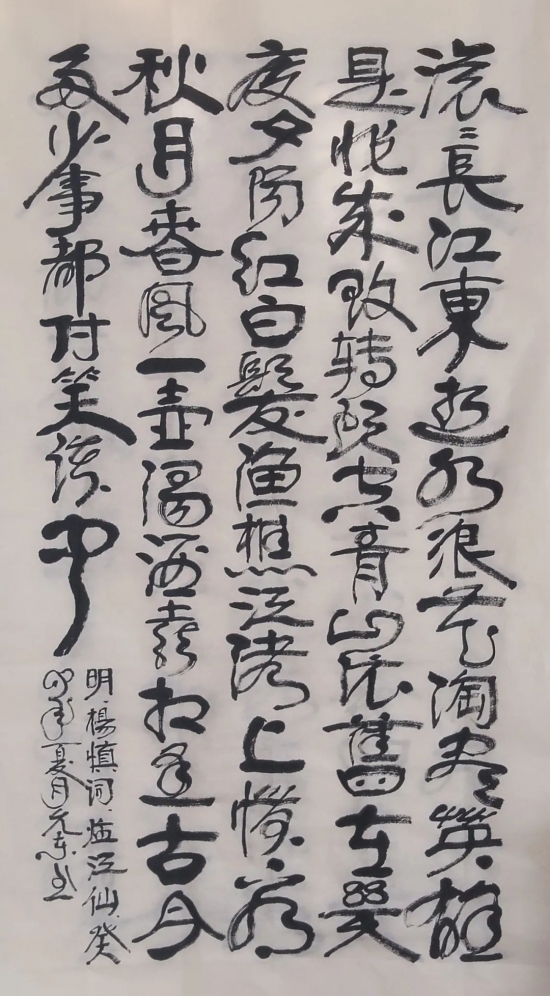 滚〻長江東逝水浪花淘盡英雄
是非成敗轉頭空青山依舊在幾
度夕陽紅白髮漁樵江渚上慣看
秋月春風一壺濁酒喜相逢古今
多少事都付笑談中
明楊慎词临江仙癸
卯年夏月元书